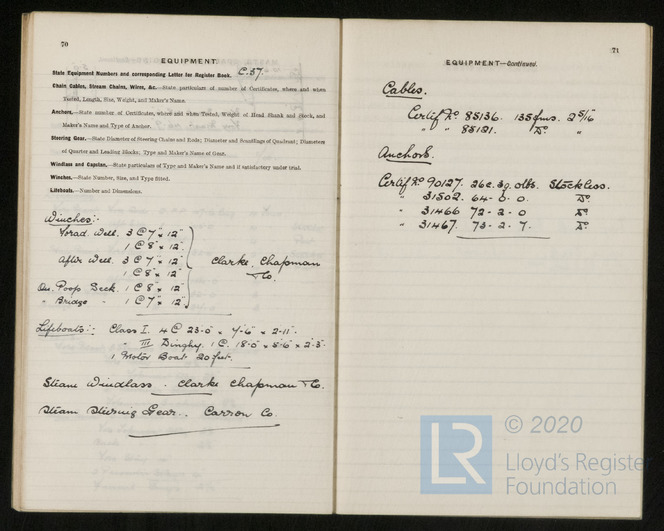 70
EQUIPMENT.
State Equipment Numbers and corresponding Letter for Register Book. C.37.
Chain Cables, Stream Chains, Wires, &c.—State particulars of number of Certificates, where and when
Tested, Length, Size, Weight, and Maker's Name.
Anchors.—State number of Certificates, where and when Tested, Weight of Head Shank and Stock, and
Maker's Name and Type of Anchor.
Steering Gear.—State Diameter of Steering Chains and Rods; Diameter and Scantlings of Quadrant; Diameters
of Quarter and Leading Blocks; Type and Maker's Name of Gear.
Windlass and Capstan.—State particulars of Type and Maker's Name and if satisfactory under trial.
Winches.—State Number, Size, and Type fitted.
Lifeboats.—Number and Dimensions.
Winches:-
Forad. Well. 3 @ 7" × 12"
1 @ 8" × 12"
After Well. 3 @ 7" × 12"
1 @ 8" × 12"
Clarke, Chapman
& Co.
On. Poop Deck. 1 @ 8" × 12"
" Bridge " 1 @ 7" × 12"
Lifeboats:- Class I. 4 @ 23·0" × 7·6" × 2·11"
" III Dinghy. 1 @ 18·0" × 5·6" × 2·3"
1 Motor Boat 20 feet.
Steam Windlass. Clarke Chapman & Co.
Steam Steering Gear.. Carron Co.
71
EQUIPMENT—Continued.
Cables.
Certif No. 85136. 135 fms. 2 5/16
" 85121. Do. "
Anchors.
Certif No 90127. 26c. 3q. 0lbs. Stockless.
" 31502. 64- 0. 0. Do.
" 31466 72- 2- 0 Do
" 31467. 73- 2- 7. Do.
© 2020
LR
Lloyd's Register
Foundation